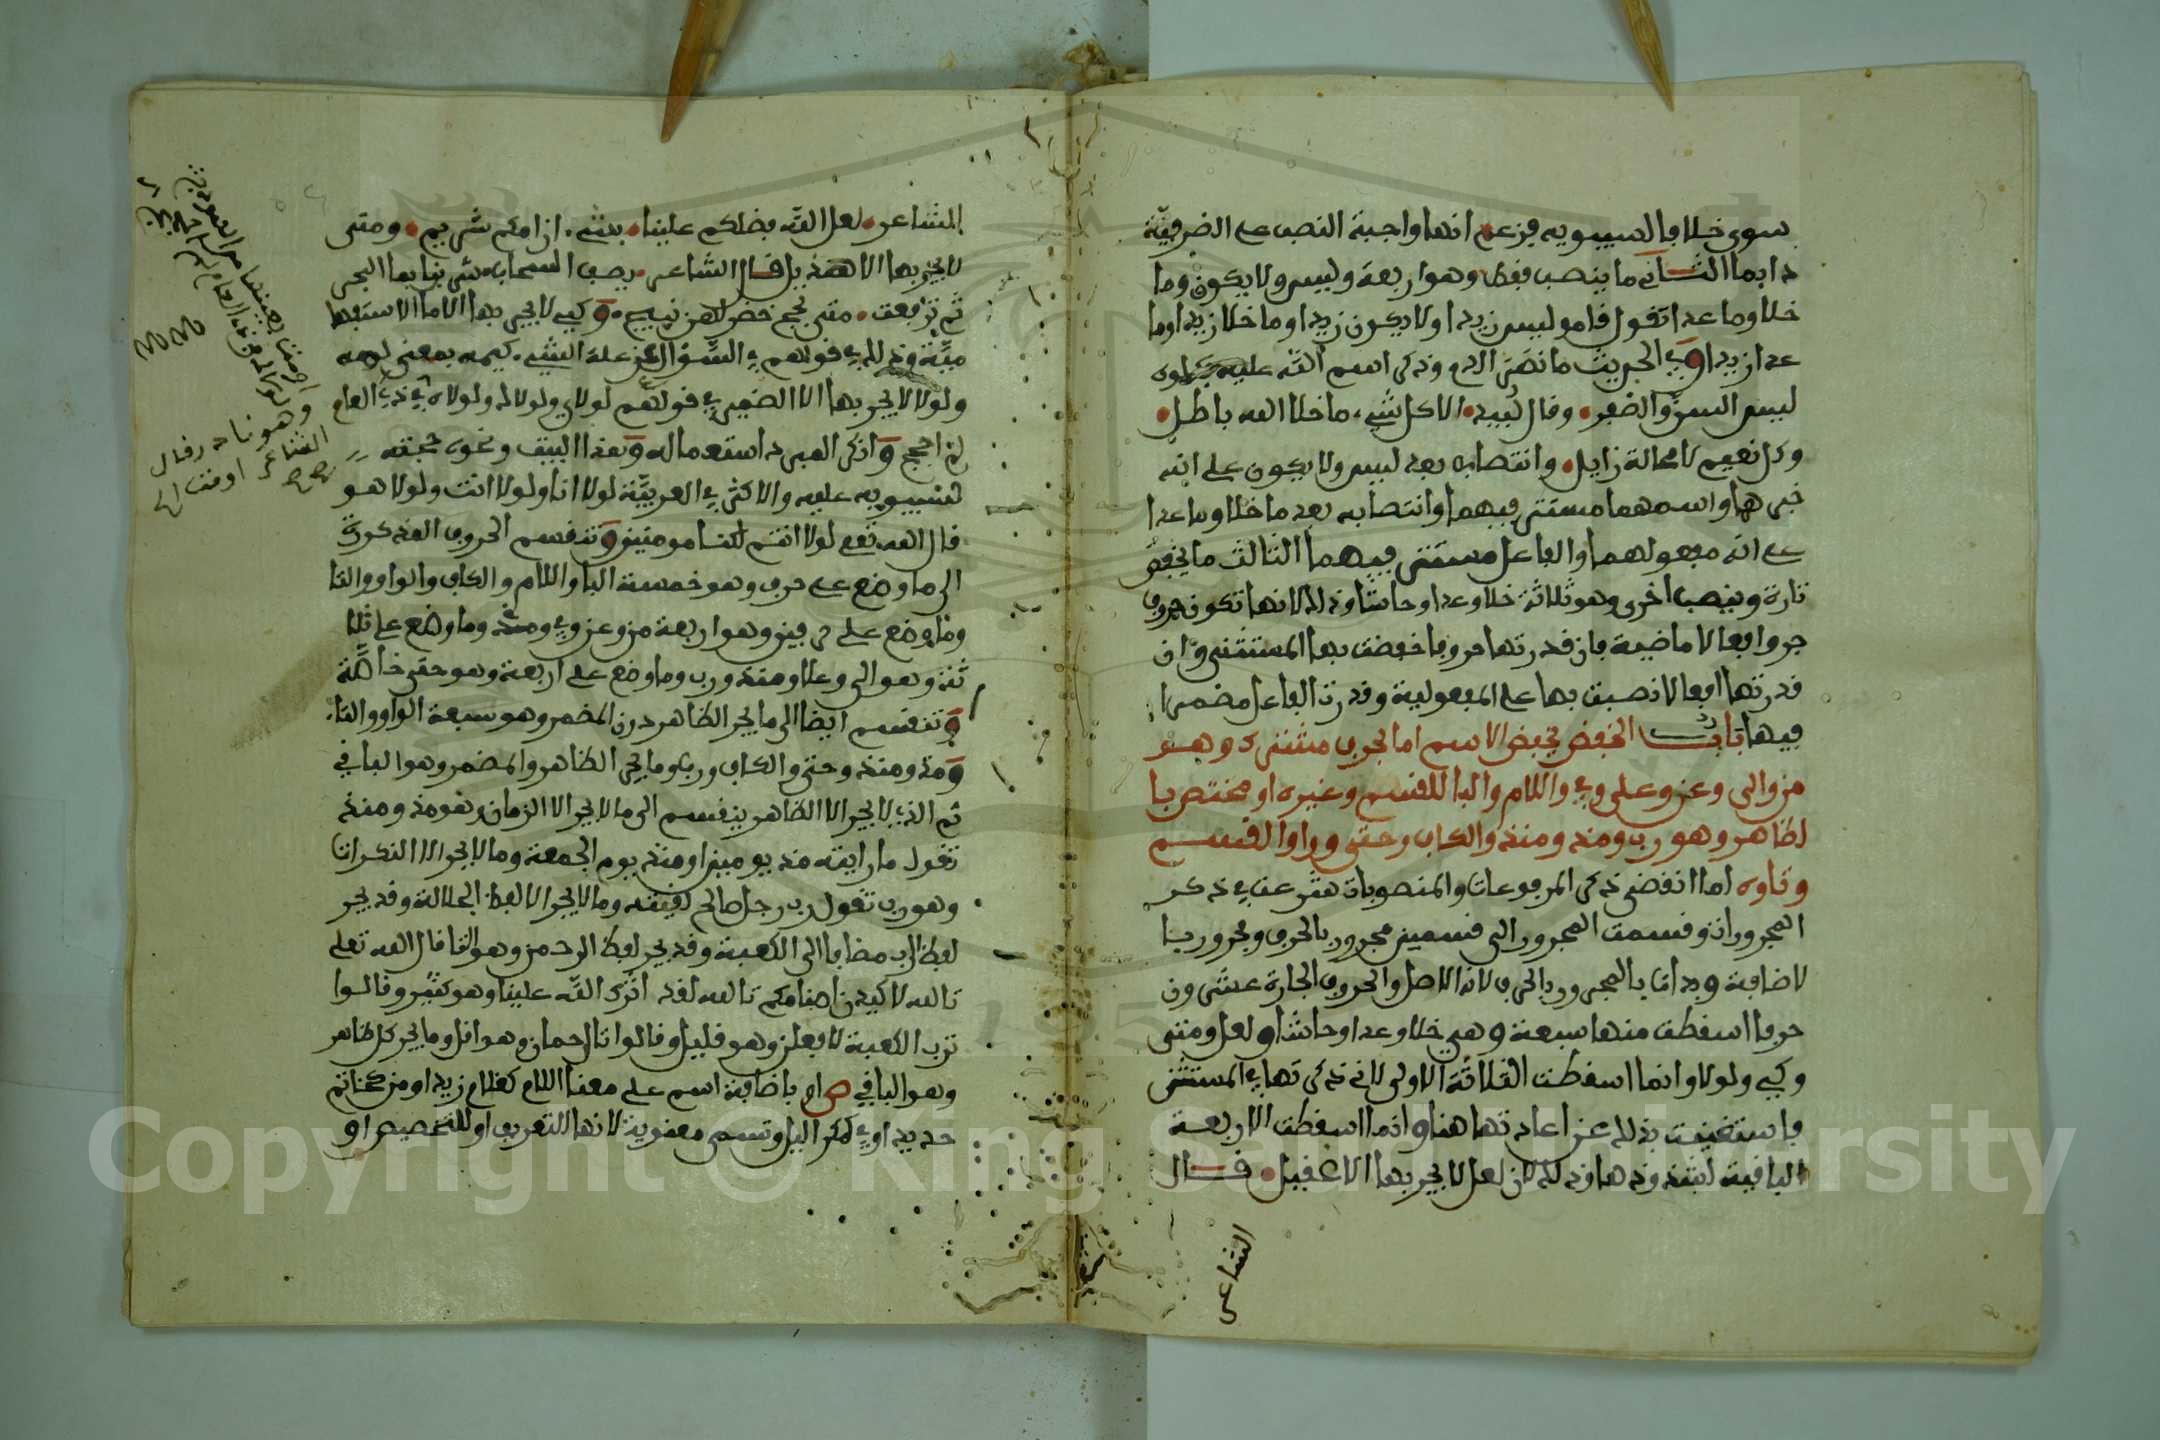 سوى خلافا لسيبويه فزعم انها واجبة النصب على الظرفية
دايما الثاني ما ينصب فقط وهو اربعة وليس ولا يكون وما
خلا وما عدا تقول قاموا ليس زيدا ولا يكون زيدا وما خلا زيدا وما
عدا زيدا وفي الحديث ما انهر الدم وذكر اسم الله عليه فكلوه
ليس السن والظفر وقال لبيد الا كل شيء ما خلا الله باطل
وكل نعيم لا محالة زايل وانتصابه بعد ليس ولا يكون على انه
خبرهما واسمهما مستتر فيهما وانتصابه بعد ما خلا وما عدا
على انه مفعولهما والفاعل مستتر فيهما الثالث ما يخفض
تارة وينصب اخرى وهو ثلاثة خلا وعدا وحاشا وذلك لانها تكون حروف
جر وافعالا ماضية فان قدرتها حروفا خفضت بها المستثنى وان
قدرتها افعالا نصبت بها على المفعولية وقدرت الفاعل مضمرا
فيها باب الخفض يخفض الاسم اما بحرف مشترك وهو
من والى وعن وعلى وفي واللام والبا للقسم وغيره او مختص با
لظاهر وهو رب ومذ ومنذ والكاف وحتى وواو القسم
وتاوه اما انقضى ذكر المرفوعات والمنصوبات شرعت في ذكر
المجرورات وقسمت المجرور الى قسمين مجرور بالحرف ومجرور با
لاضافة وبدات بالمجرور بالحرف لانه الاصل والحروف الجارة عشرون
حرفا اسقطت منها سبعة وهي خلا وعدا وحاشا ولعل ومتى
وكي ولولا وانما اسقطت الثلاثة الاولى لاني ذكرتها في المستثنى
فاستغنيت بذلك عن اعادتها هنا وانما اسقطت الاربعة
الباقية لشذوذها وذلك لان لعل لا يجر بها الا عقيل قال
الشاعر
الشاعر لعل الله فضلكم علينا بشيء ان امكم شريم ومتى
لا يجر بها الا هذيل قال الشاعر يصف السحاب شربن بما البحر
ثم ترفعت متى لجج خضر لهن نييج وكي لا يجر بها الا ما الاستفها
مية وذلك في قولهم في السؤال عن علة الشيء كيمه بمعنى لمه
ولولا لا يجر بها الا الضمير في قولهم لولاي ولولاك ولولاه في ذي العام
لم احجج وانكر المبرد استعماله وهذا البيت ونحوه حجة
لسيبويه عليه والاكثر في العربية لولا انا ولولا انت ولولا هو
قال الله تعلى لولا انتم لكنا مومنين وتنقسم الحروف المذكورة
الى ما وضع على حرف وهو خمسة البا واللام والكاف والواو والتا
وما وضع على حرفين وهو اربعة من وعن وفي ومذ وما وضع على ثلا
ثة وهو الى وعلى ومنذ ورب وما وضع على اربعة وهو حتى خاصة
وتنقسم ايضا الى ما يجر الظاهر دون المضمر وهو سبعة الواو والتا
ومذ ومنذ وحتى والكاف ورب وما يجر الظاهر والمضمر وهو الباقي
ثم الذي لا يجر الا الظاهر ينقسم الى ما لا يجر الا الزمان وهو مذ ومنذ
تقول ما رايته مذ يومين او منذ يوم الجمعة وما لا يجر الا النكرات
وهو رب تقول رب رجل صالح لقيته وما لا يجر الا لفظ الجلالة وقد يجر
لفظ الرب مضافا الى الكعبة وقد يجر لفظ الرحمن وهو التا قال الله تعلى
تالله لاكيدن اصنامكم تالله لقد اثرك الله علينا وهو كثير وقالوا
ترب الكعبة لافعلن وهو قليل وقالوا تالرحمان وهو اقل وما يجر كل ظاهر
وهو الباقي ص او باضافة اسم على معنا اللام كغلام زيد او من كخاتم
حديد او في كمكر اليل وتسمى معنوية لانها للتعريف او للتخصيص او
وهو نادر قال
الشاعر اومت